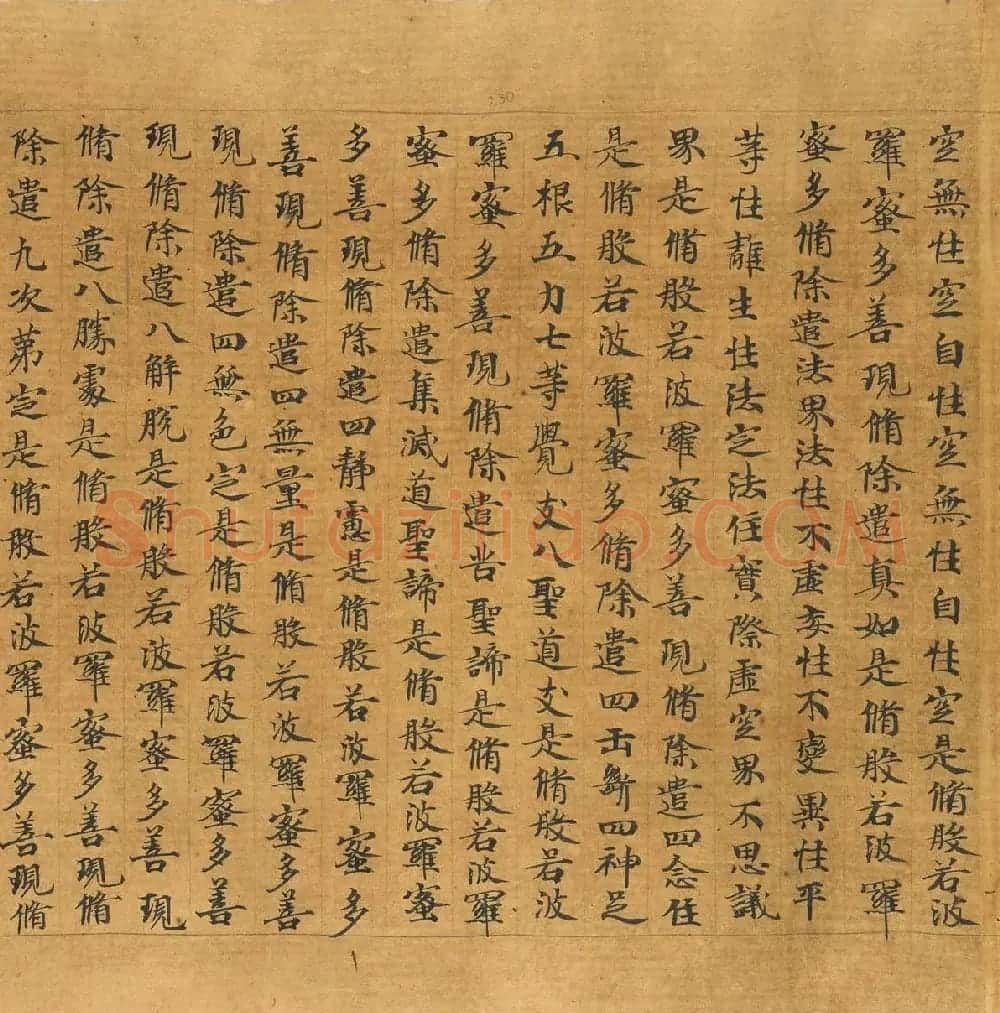 空無性空自性空無性自性空是脩般若波
羅蜜多善現脩除遣真如是脩般若波羅
蜜多脩除遣法界法性不虛妄性不變異性平
等性離生性法定法住實際虛空界不思議
界是脩般若波羅蜜多善現脩除遣四念住
是脩般若波羅蜜多脩除遣四正斷四神足
五根五力七等覺支八聖道支是脩般若波
羅蜜多善現脩除遣苦聖諦是脩般若波羅
蜜多脩除遣集滅道聖諦是脩般若波羅蜜
多善現脩除遣四靜慮是脩般若波羅蜜多
善現脩除遣四無量是脩般若波羅蜜多善
現脩除遣四無色定是脩般若波羅蜜多善
現脩除遣八解脫是脩般若波羅蜜多善現
脩除遣八勝處是脩般若波羅蜜多善現脩
除遣九次第定是脩般若波羅蜜多善現脩
Shufaziliao.COM